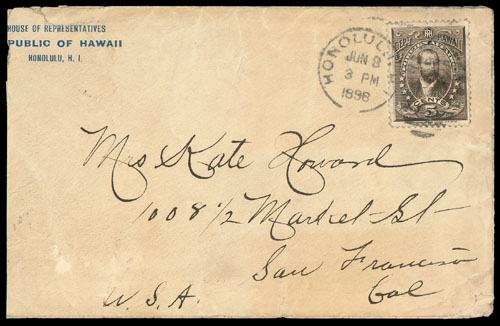 HOUSE OF REPRESENTATIVES
PUBLIC OF HAWAII
HONOLULU, H. I.
HONOLULU
JUN 8
3 PM
1898
CENTS 5
Mrs Kate Howard
1008 1/2 Market St
San Francisco
Cal
U.S.A.